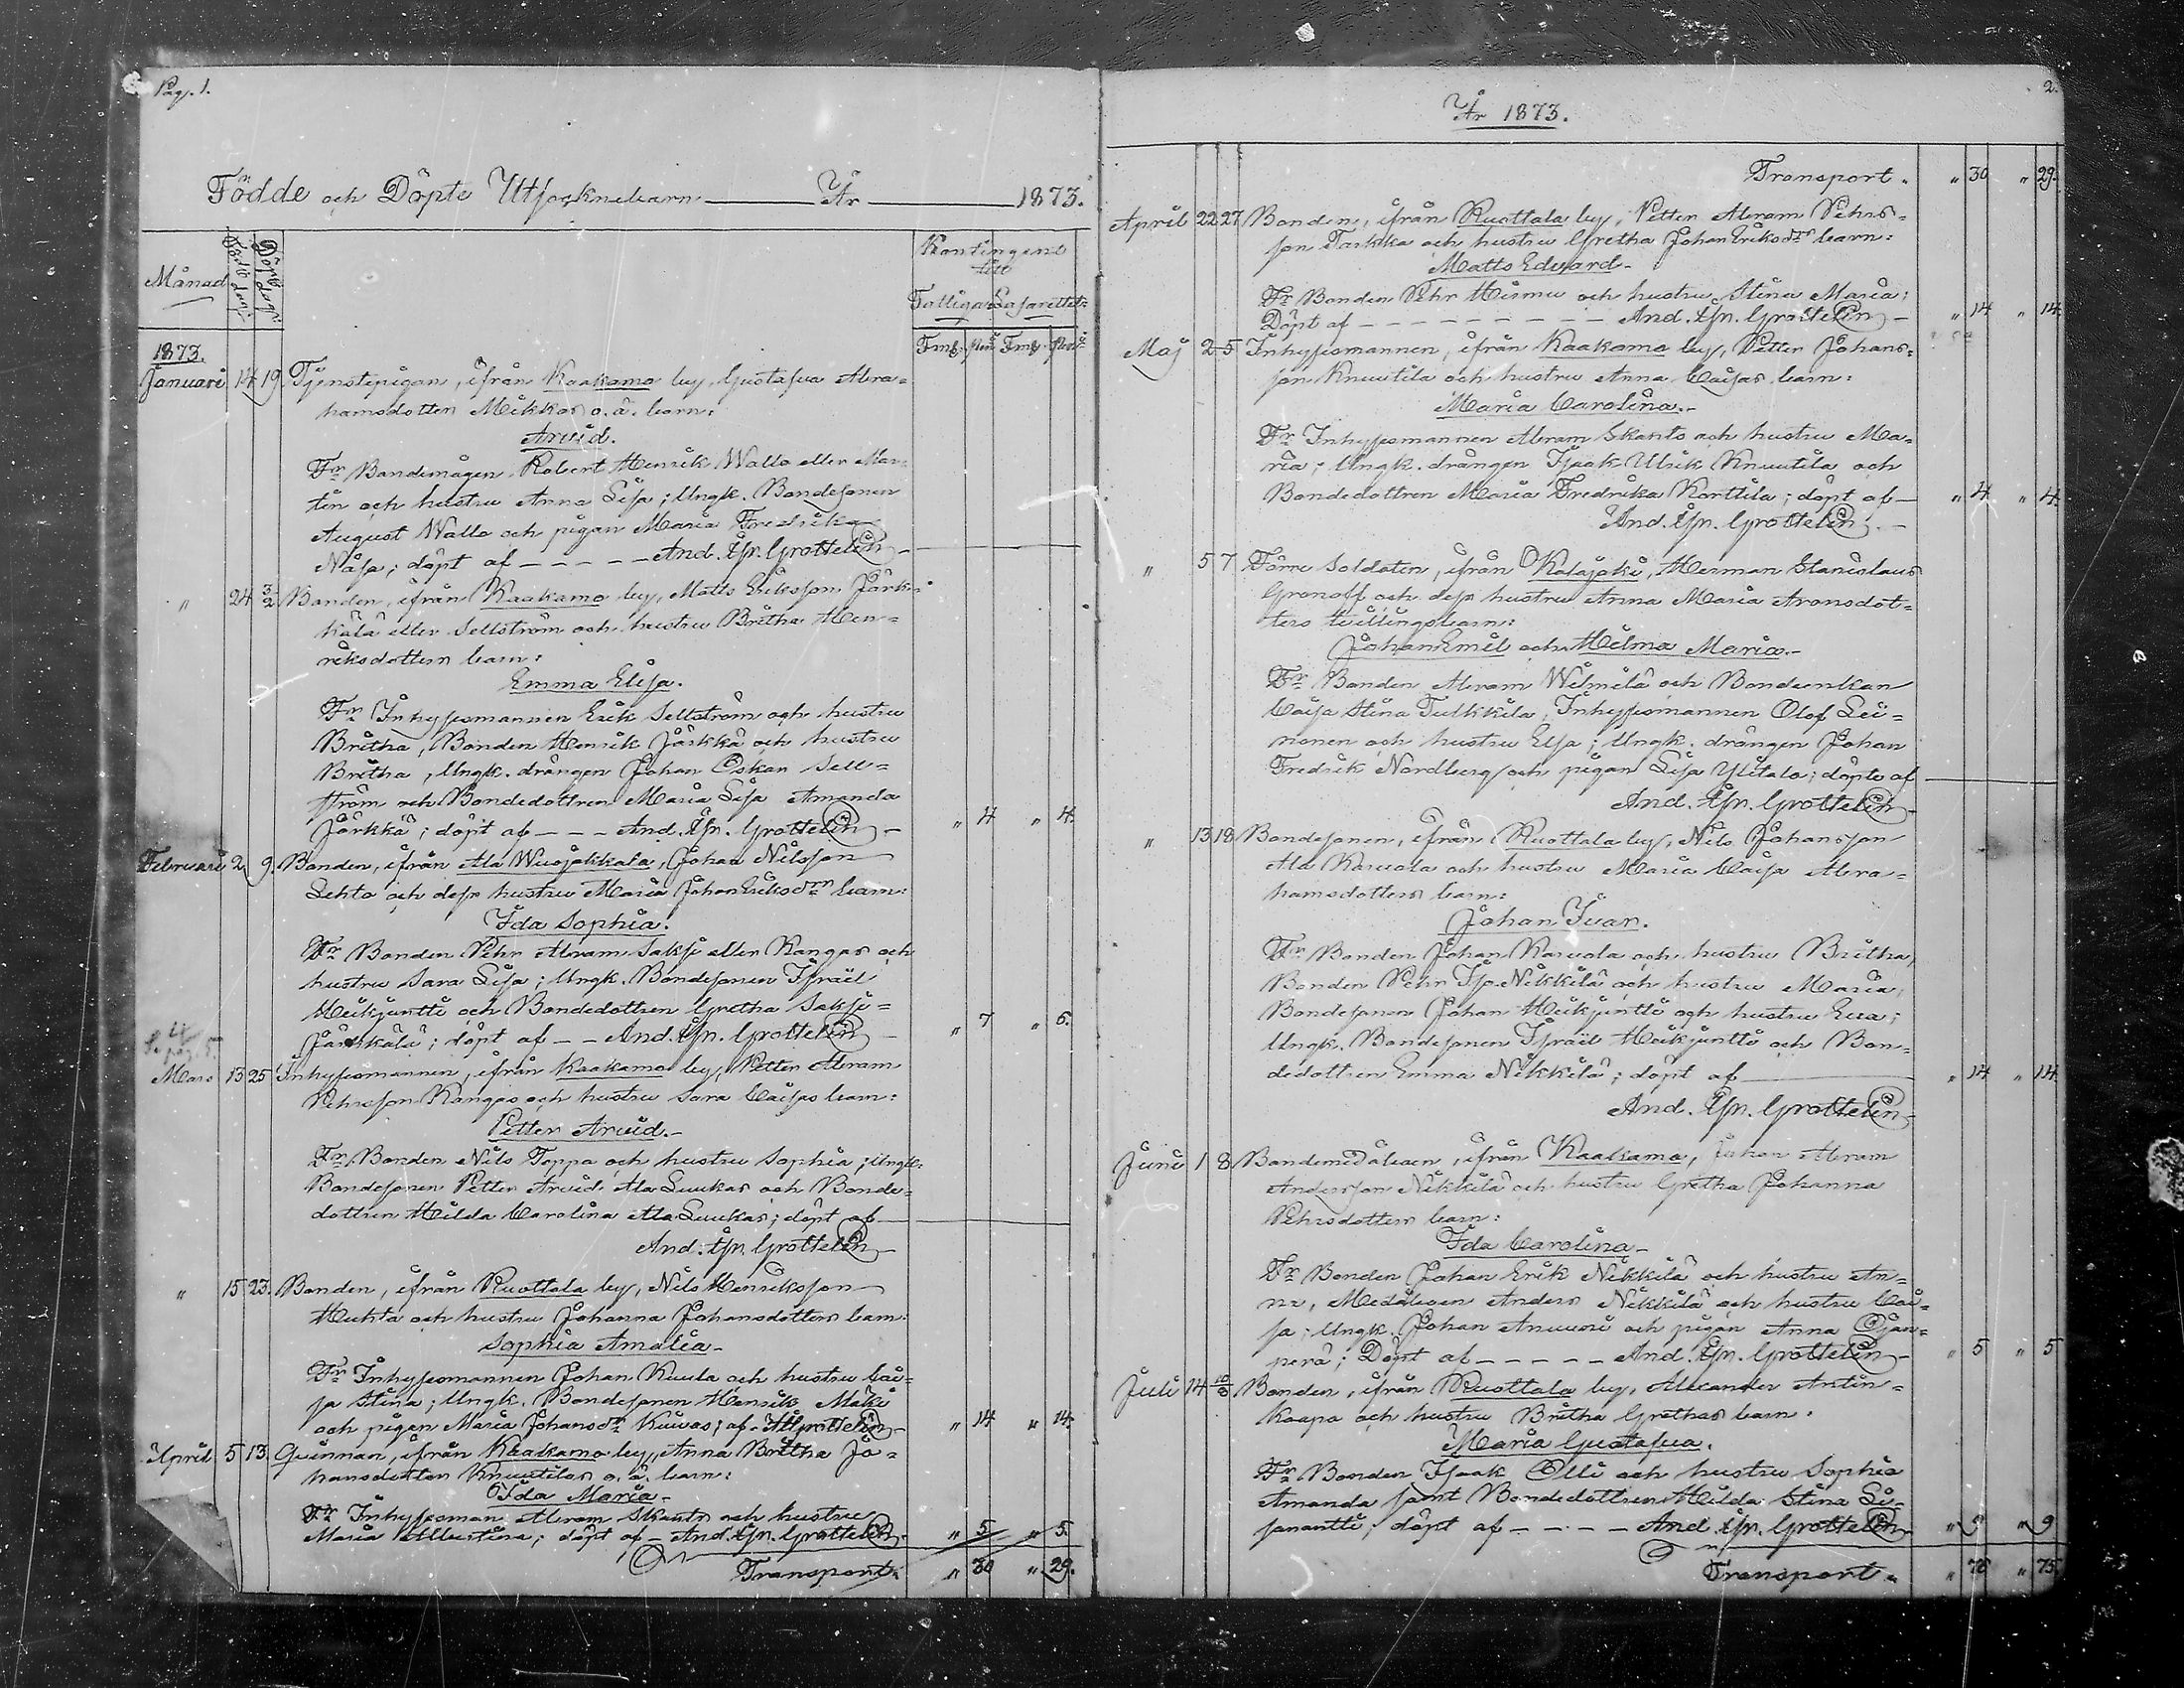 Pag. 1.
Födde och Döpte Utsocknebarn År 1873.
Månad Födelsedag Döpelsedag Kontingent till
Fattigas Lasarettet
Fmk. pen. Fmk. pen.
1873.
Januari 14 19 Tjenstepigan, ifrån Kaakamo by, Gustafva Abra=
hamsdotter Mikkas o. ä. barn:
Arvid.
Fr Bondemågen Robert Henrik Wallo eller Mar=
tin och hustru Anna Lisa; Ungk. Bondesonen
August Wallo och pigan Maria Fredrika
Näsa; döpt af – – – – And. Isr. Grottelin
" 24 3/2 Bonden, ifrån Kaakamo by, Matts Eriksson Järk=
kälä eller Sellström och hustru Britha Hen=
riksdotters barn:
Emma Elisa.
Fr Inhysesmannen Erik Sellström och hustru
Britha, Bonden Henrik Järkkä och hustru
Britha, Ungk. drängen Johan Oskar Sell=
ström och Bondedottren Maria Lisa Amanda
Järkkä; döpt af – – – And. Isr. Grottelin – " 4 " 4.
Februari 2 9. Bonden, ifrån Ala Wuojakkala, Johan Nilsson
Lehto och dess hustru Maria Johan Eriksdtrs barn:
Ida Sophia.
Fr Bonden Pehr Abram Saksi eller Kangas och
hustru Sara Lisa; Ungk. Bondesonen Israel
Heikjuntti och Bondedottren Gretha Saksi=
Järkkälä; döpt af – – And. Isr. Grottelin – " 7 " 6.
Se pag. 5.
Mars 13 25 Inhysesmannen, ifrån Kaakamo by, Petter Abram
Pehrsson Kangas och hustru Sara Caisas barn:
Petter Arvid. –
Fr Bonden Nils Toppa och hustru Sophia; Ungk.
Bondesonen Petter Arvid Ala Luukas och Bonde=
dottren Hilda Carolina Ala Luukas; döpt af
And. Isr. Grottelin –
" 15 23. Bonden, ifrån Ruottala by, Nils Henriksson
Huhta och hustru Johanna Johansdotters barn:
Sophia Amalia –
Fr Inhysesmannen Johan Kuula och hustru Cai=
sa Stina; Ungk. Bondesonen Henrik Mäki
och pigan Maria Johansdr Kuivas; af AIGrottelin – " 14 " 14.
April 5 13. Qvinnan, ifrån Kaakamo by, Anna Britha Jo=
hansdotter Knuutilas o. ä. barn:
Ida Maria –
Fr Inhysesman Abram Skants och hustru
Maria Albertina; döpt af – And. Isr. Grottelin. " 5 " 5.
Transport. " 30 " 29.
2.
År 1873.
Transport. " 30 " 29.
April 22 27 Bonden, ifrån Ruottala by, Petter Abram Pehrs=
son Tarkka och hustru Gretha Johan Eriksdtrs barn:
Matts Edvard –
Fr Bonden Pehr Hirmu och hustru Stina Maria;
Döpt af – – – – – – – – And. Isr. Grottelin – " 14 " 14.
Maj 2 5 Inhysesmannen, ifrån Kaakamo by, Petter Johans=
son Knuutila och hustru Anna Caisas barn:
Maria Carolina. –
Fr Inhysesmannen Abram Skants och hustru Ma=
ria; Ungk. drängen Isaak Ulrik Knuutila och
Bondedottren Maria Fredrika Korttila; döpt af – " 4 " 4.
And. Isr. Grottelin. –
" 5 7 Förre Soldaten, ifrån Kalajoki, Herman Stanislaus
Gronoff och dess hustru Anna Maria Aronsdot=
ters tvillingsbarn:
Johan Emil och Hilma Maria. –
Fr Bonden Abram Wilmilä och Bondeenkan
Caisa Stina Tulkkila, Inhysesmannen Olof Lei=
nonen och hustru Elsa; Ungk. drängen Johan
Fredrik Nordberg och pigan Lisa Ylitalo; döpte af
And. Isr. Grottelin –
" 13 18 Bondesonen, ifrån Ruottala by, Nils Johansson
Ala Karvola och hustru Maria Caisa Abra=
hamsdotters barn:
Johan Ivar.
Fr Bonden Johan Karvola och hustru Britha,
Bonden Pehr Is. Nikkilä och hustru Maria,
Bondesonen Johan Heikjuntti och hustru Eva;
Ungk. Bondesonen Israel Heikjuntti och Bon=
dedottren Emma Nikkilä; döpt af " 14 " 14.
And. Isr. Grottelin –
Juni 1 8 Bondemedåboen, ifrån Kaakamo, Johan Abram
Andersson Nikkilä och hustru Gretha Johanna
Pehrsdotters barn:
Ida Carolina –
Fr Bonden Johan Erik Nikkilä och hustru An=
na, Medåboen Anders Nikkilä och hustru Cai=
sa; Ungk. Johan Anuvari och pigan Anna Ojan=
perä; Döpt af – – – – – And. Isr. Grottelin – " 5 " 5
Juli 14 10/8 Bonden, ifrån Ruottala by, Alexander Antin=
Kaapa och hustru Britha Grethas barn:
Maria Gustafva.
Fr Bonden Isaak Olli och hustru Sophia
Amanda samt Bondedottren Hilda Stina Li=
sanantti; döpt af – – – – And. Isr. Grottelin " 9 " 9
Transport. " 76 " 75.